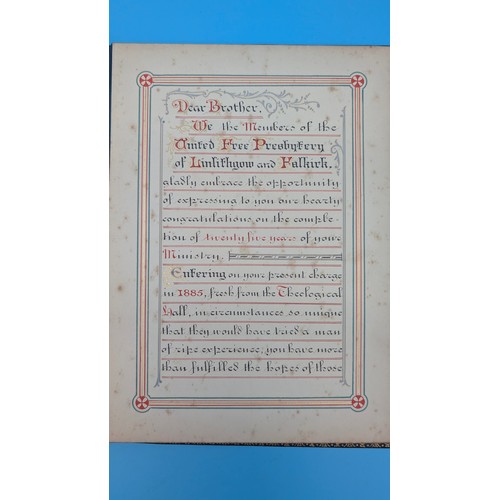 Dear Brother.
We the Members of the
United Free Presbytery
of Linlithgow and Falkirk.
gladly embrace the opportunity
of expressing to you our hearty
congratulations on the comple-
tion of twenty five years of your
Ministry.
Entering on your present charge
in 1885, fresh from the Theological
Hall, in circumstances so unique
that they would have tried a man
of ripe experience, you have more
than fulfilled the hopes of those